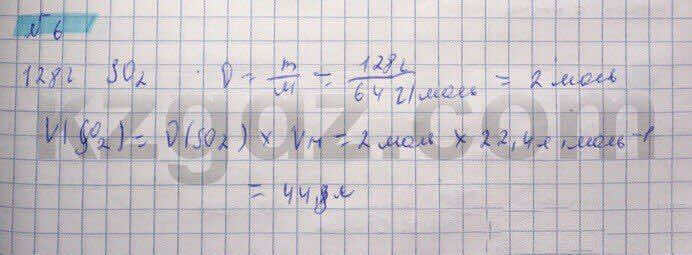 № 6
128г SO₂ · ν = m/M = 128г/64 г/моль = 2 моль
V(SO₂) = ν(SO₂) × Vм = 2 моль × 22,4л·моль⁻¹
= 44,8л
kzgdz.com